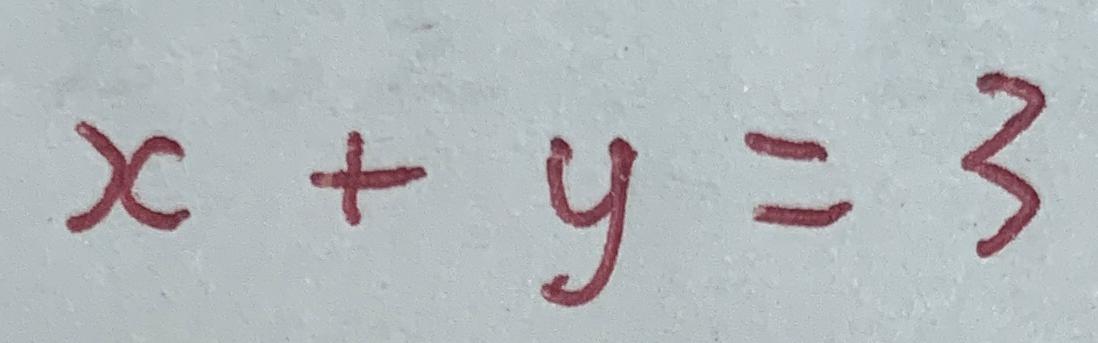 x + y = 3